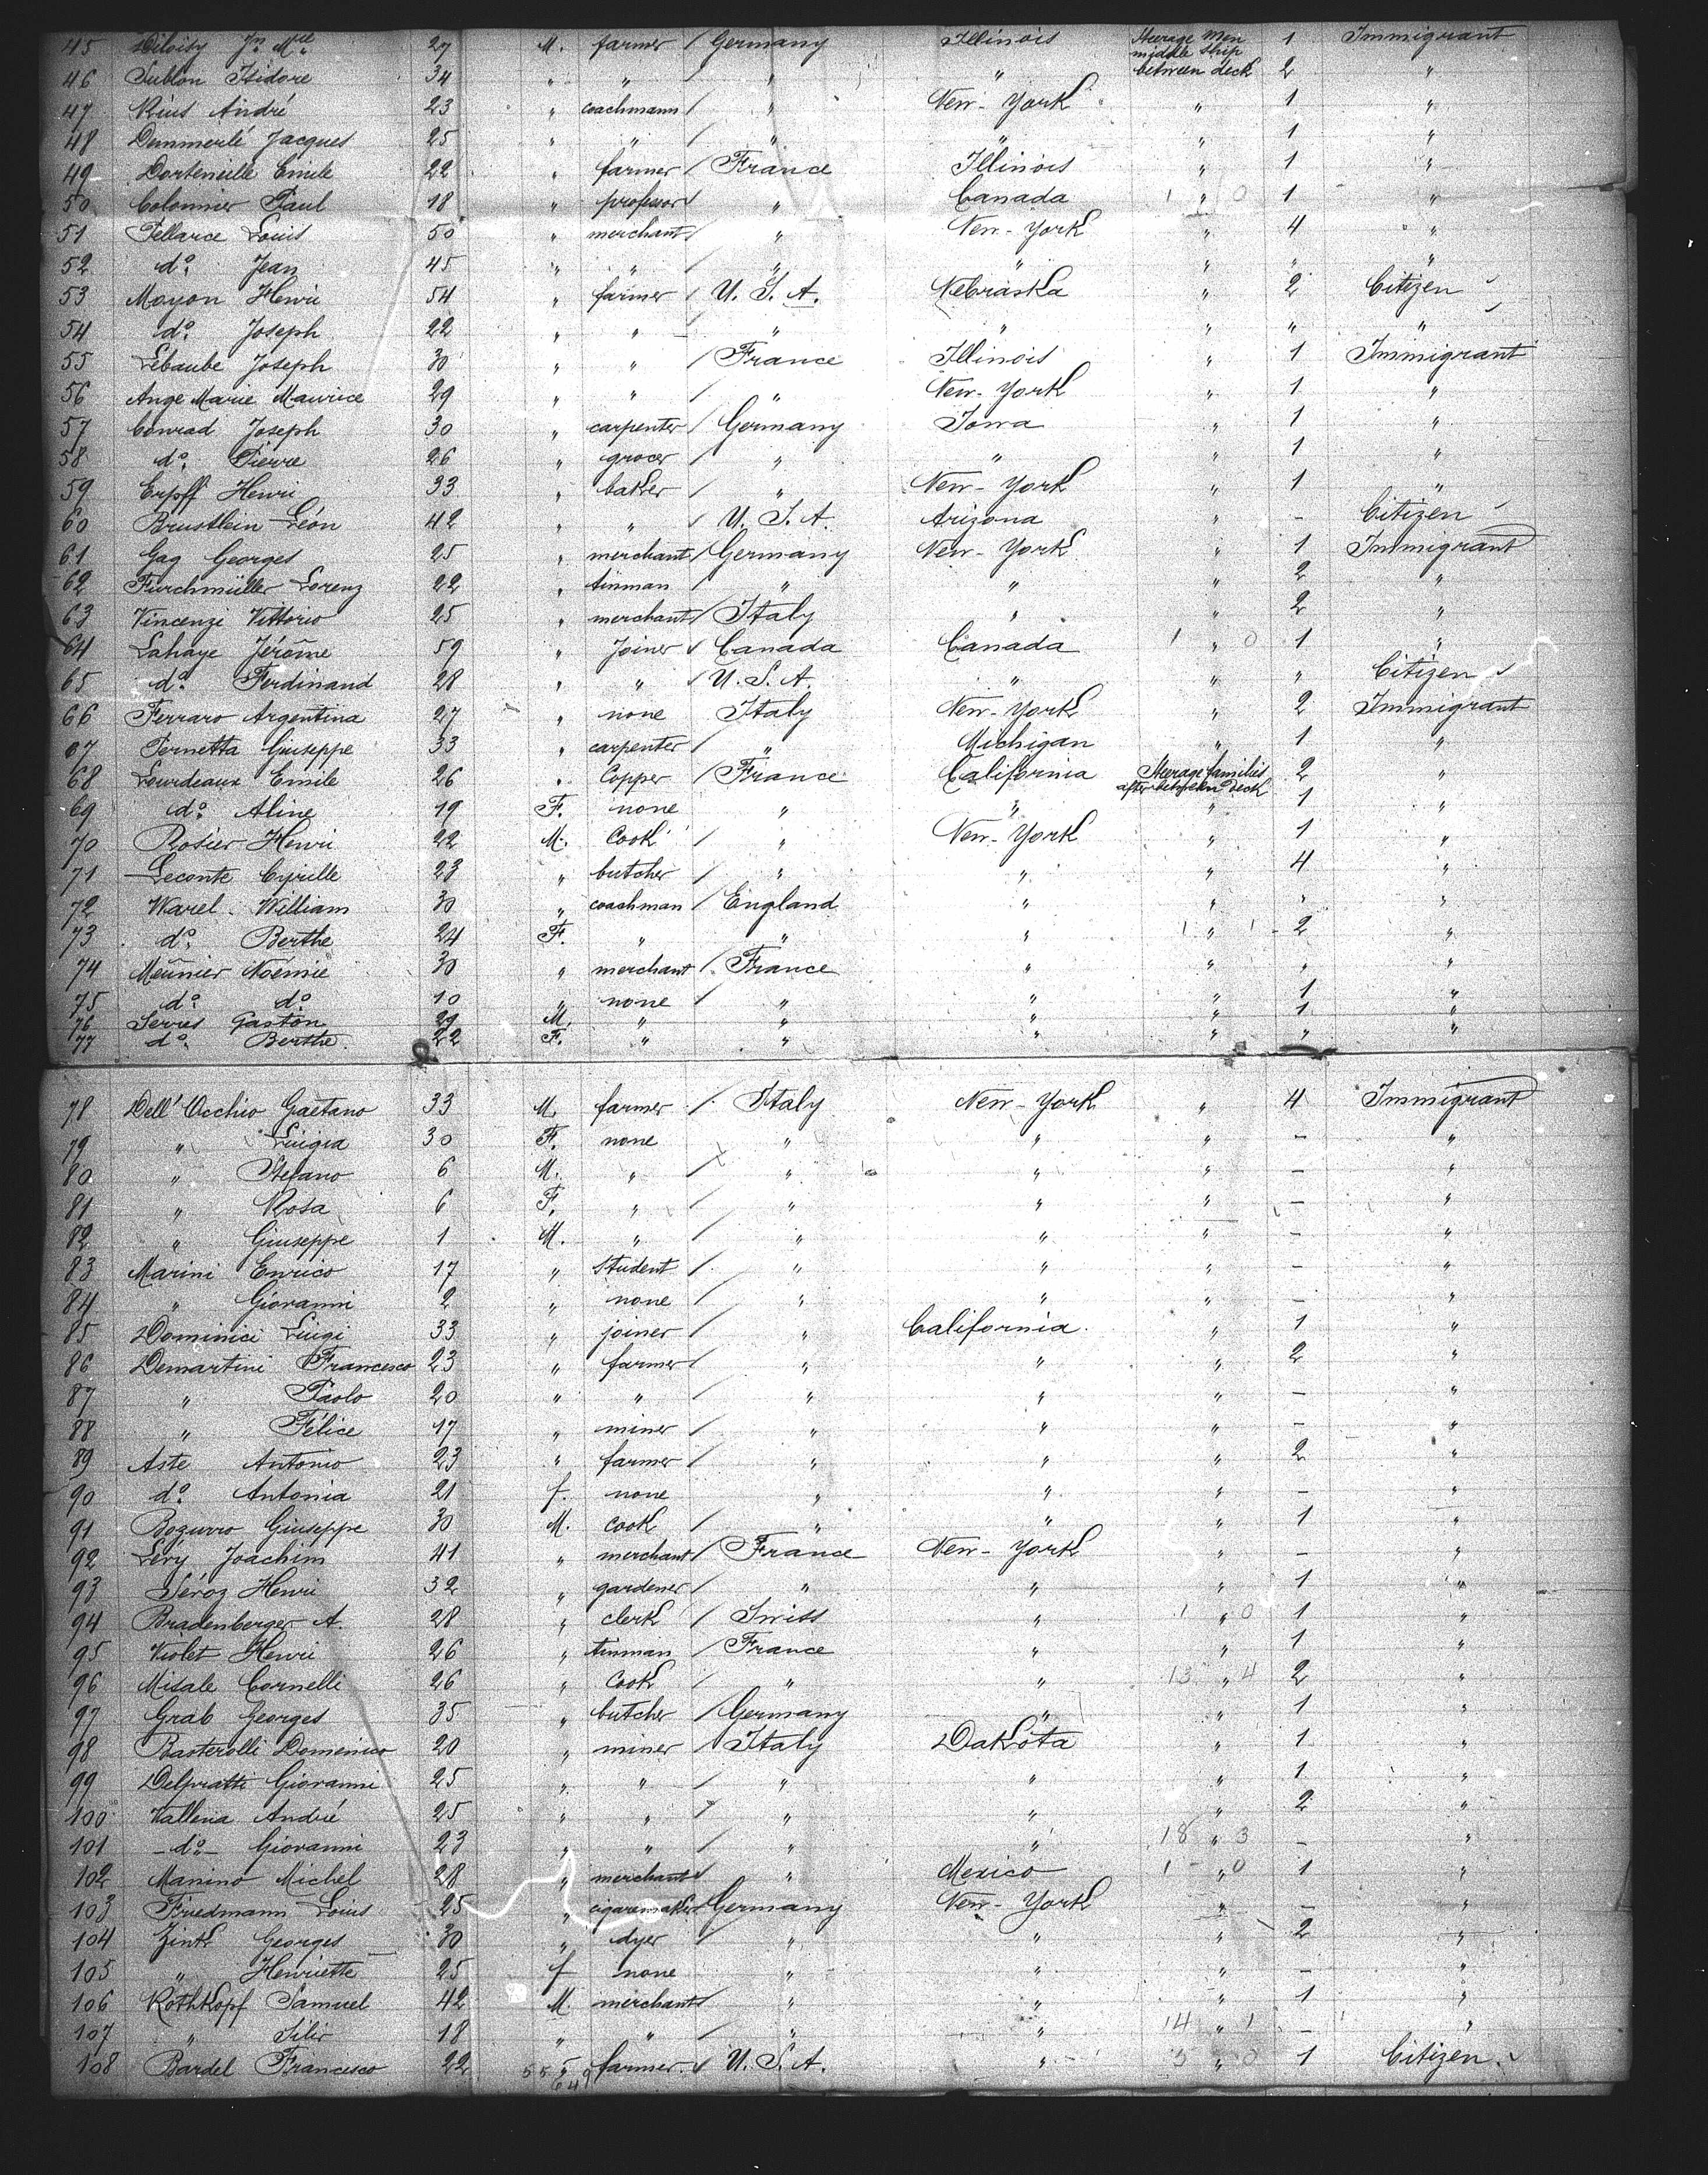 45 Diloisy Jn. Mel 27 M. farmer / Germany Illinois Steerage Men middle ship between deck 1 Immigrant
46 Sublon Isidore 34 " " " " 2 "
47 Rius André 23 " coachmann / " New-York " 1 "
48 Dummerlé Jacques 25 " " / " " " 1 "
49 Dorteneille Emile 22 " farmer / France Illinois " 1 "
50 Colonner Paul 18 " professor / " Canada 1 " 0 1 "
51 Tellarce Louis 50 " merchant / " New-York " 4 "
52 do. Jean 45 " " / " " " " "
53 Moyon Henri 54 " farmer / U. S. A. Nebraska " 2 Citizen
54 do. Joseph 22 " " " " " " "
55 Lebaube Joseph 30 " " / France Illinois " 1 Immigrant
56 Ange Marie Maurice 29 " " / " New-York " 1 "
57 Conrad Joseph 30 " carpenter / Germany Iowa " 1 "
58 do. Pierre 26 " grocer / " " " 1 "
59 Erpff Henri 33 " baker / " New-York " 1 "
60 Brustlein Léon 42 " " / U. S. A. Arizona " - Citizen
61 Gag Georges 25 " merchant / Germany New-York " 1 Immigrant
62 Furchmüller Lorenz 22 " tinman / " " " 2 "
63 Vincenzi Vittorio 25 " merchant / Italy " " 2 "
64 Lahaye Jérôme 59 " Joiner Canada Canada 1 " 0 1 "
65 do. Ferdinand 28 " " U. S. A. " " " Citizen
66 Ferraro Argentina 27 " none Italy New-York " 2 Immigrant
67 Pernetta Giuseppe 33 " carpenter / " Michigan " 1 "
68 Lourdeaux Emile 26 " Copper / France California Steerage families after between deck 2 "
69 do. Aline 19 F. none " " " 1 "
70 Rosier Henri 22 M. Cook / " New-York " 1 "
71 Leconte Cyrille 23 " butcher / " " " 4 "
72 Warel William 30 " coachman / England " " " "
73 do. Berthe 24 F. " " " 1 " 1 - 2 "
74 Meunier Noémie 30 " merchant / France " " " "
75 do. do. 10 " none / " " " 1 "
76 Serres Gaston 29 M. " " " " 1 "
77 do. Berthe 22 F. " " " " " "
78 Dell' Occhio Gaetano 33 M. farmer / Italy New-York " 4 Immigrant
79 " Luigia 30 F. none " " " - "
80 " Stefano 6 M. " / " " " - "
81 " Rosa 6 F. " / " " " - "
82 " Giuseppe 1 M. " / " " " - "
83 Marini Enrico 17 " student / " " " - "
84 " Giovanni 2 " none / " " " - "
85 Dominici Luigi 33 " joiner / " California " 1 "
86 Demartini Francesco 23 " farmer / " " " 2 "
87 " Paolo 20 " " / " " " - "
88 " Félice 17 " miner / " " " - "
89 Aste Antonio 23 " farmer / " " " 2 "
90 do. Antonia 21 f. none " " " - "
91 Bozurro Giuseppe 30 M. cook / " " " 1 "
92 Lévy Joachim 41 " merchant / France New-York " - "
93 Séroz Henri 32 " gardener / " " " 1 "
94 Bradenberger A. 28 " clerk / Swiss " 1 " 0 1 "
95 Violet Henri 26 " tinman / France " " 1 "
96 Misale Cornelli 26 " Cook / " " 13 " 4 2 "
97 Grab Georges 35 " butcher / Germany " " 1 "
98 Basterolli Domenico 20 " miner / Italy Dakota " 1 "
99 Delpratti Giovanni 25 " " / " " " 1 "
100 Vallena André 25 " " / " " " 2 "
101 -do- Giovanni 23 " " / " " 18 " 3 - "
102 Manino Michel 28 " merchant " Mexico 1 " 0 1 "
103 Friedmann Louis 25 " cigaremaker Germany New-York " - "
104 Zink Georges 30 " dyer / " " " 2 "
105 " Henriette 25 f none " " " - "
106 Rothkopf Samuel 42 M. merchant / " " " 1 "
107 " Silir 18 " " / " " 14 " 1 - "
108 Bardel Francesco 22 " farmer U. S. A. " 5 " 0 1 Citizen